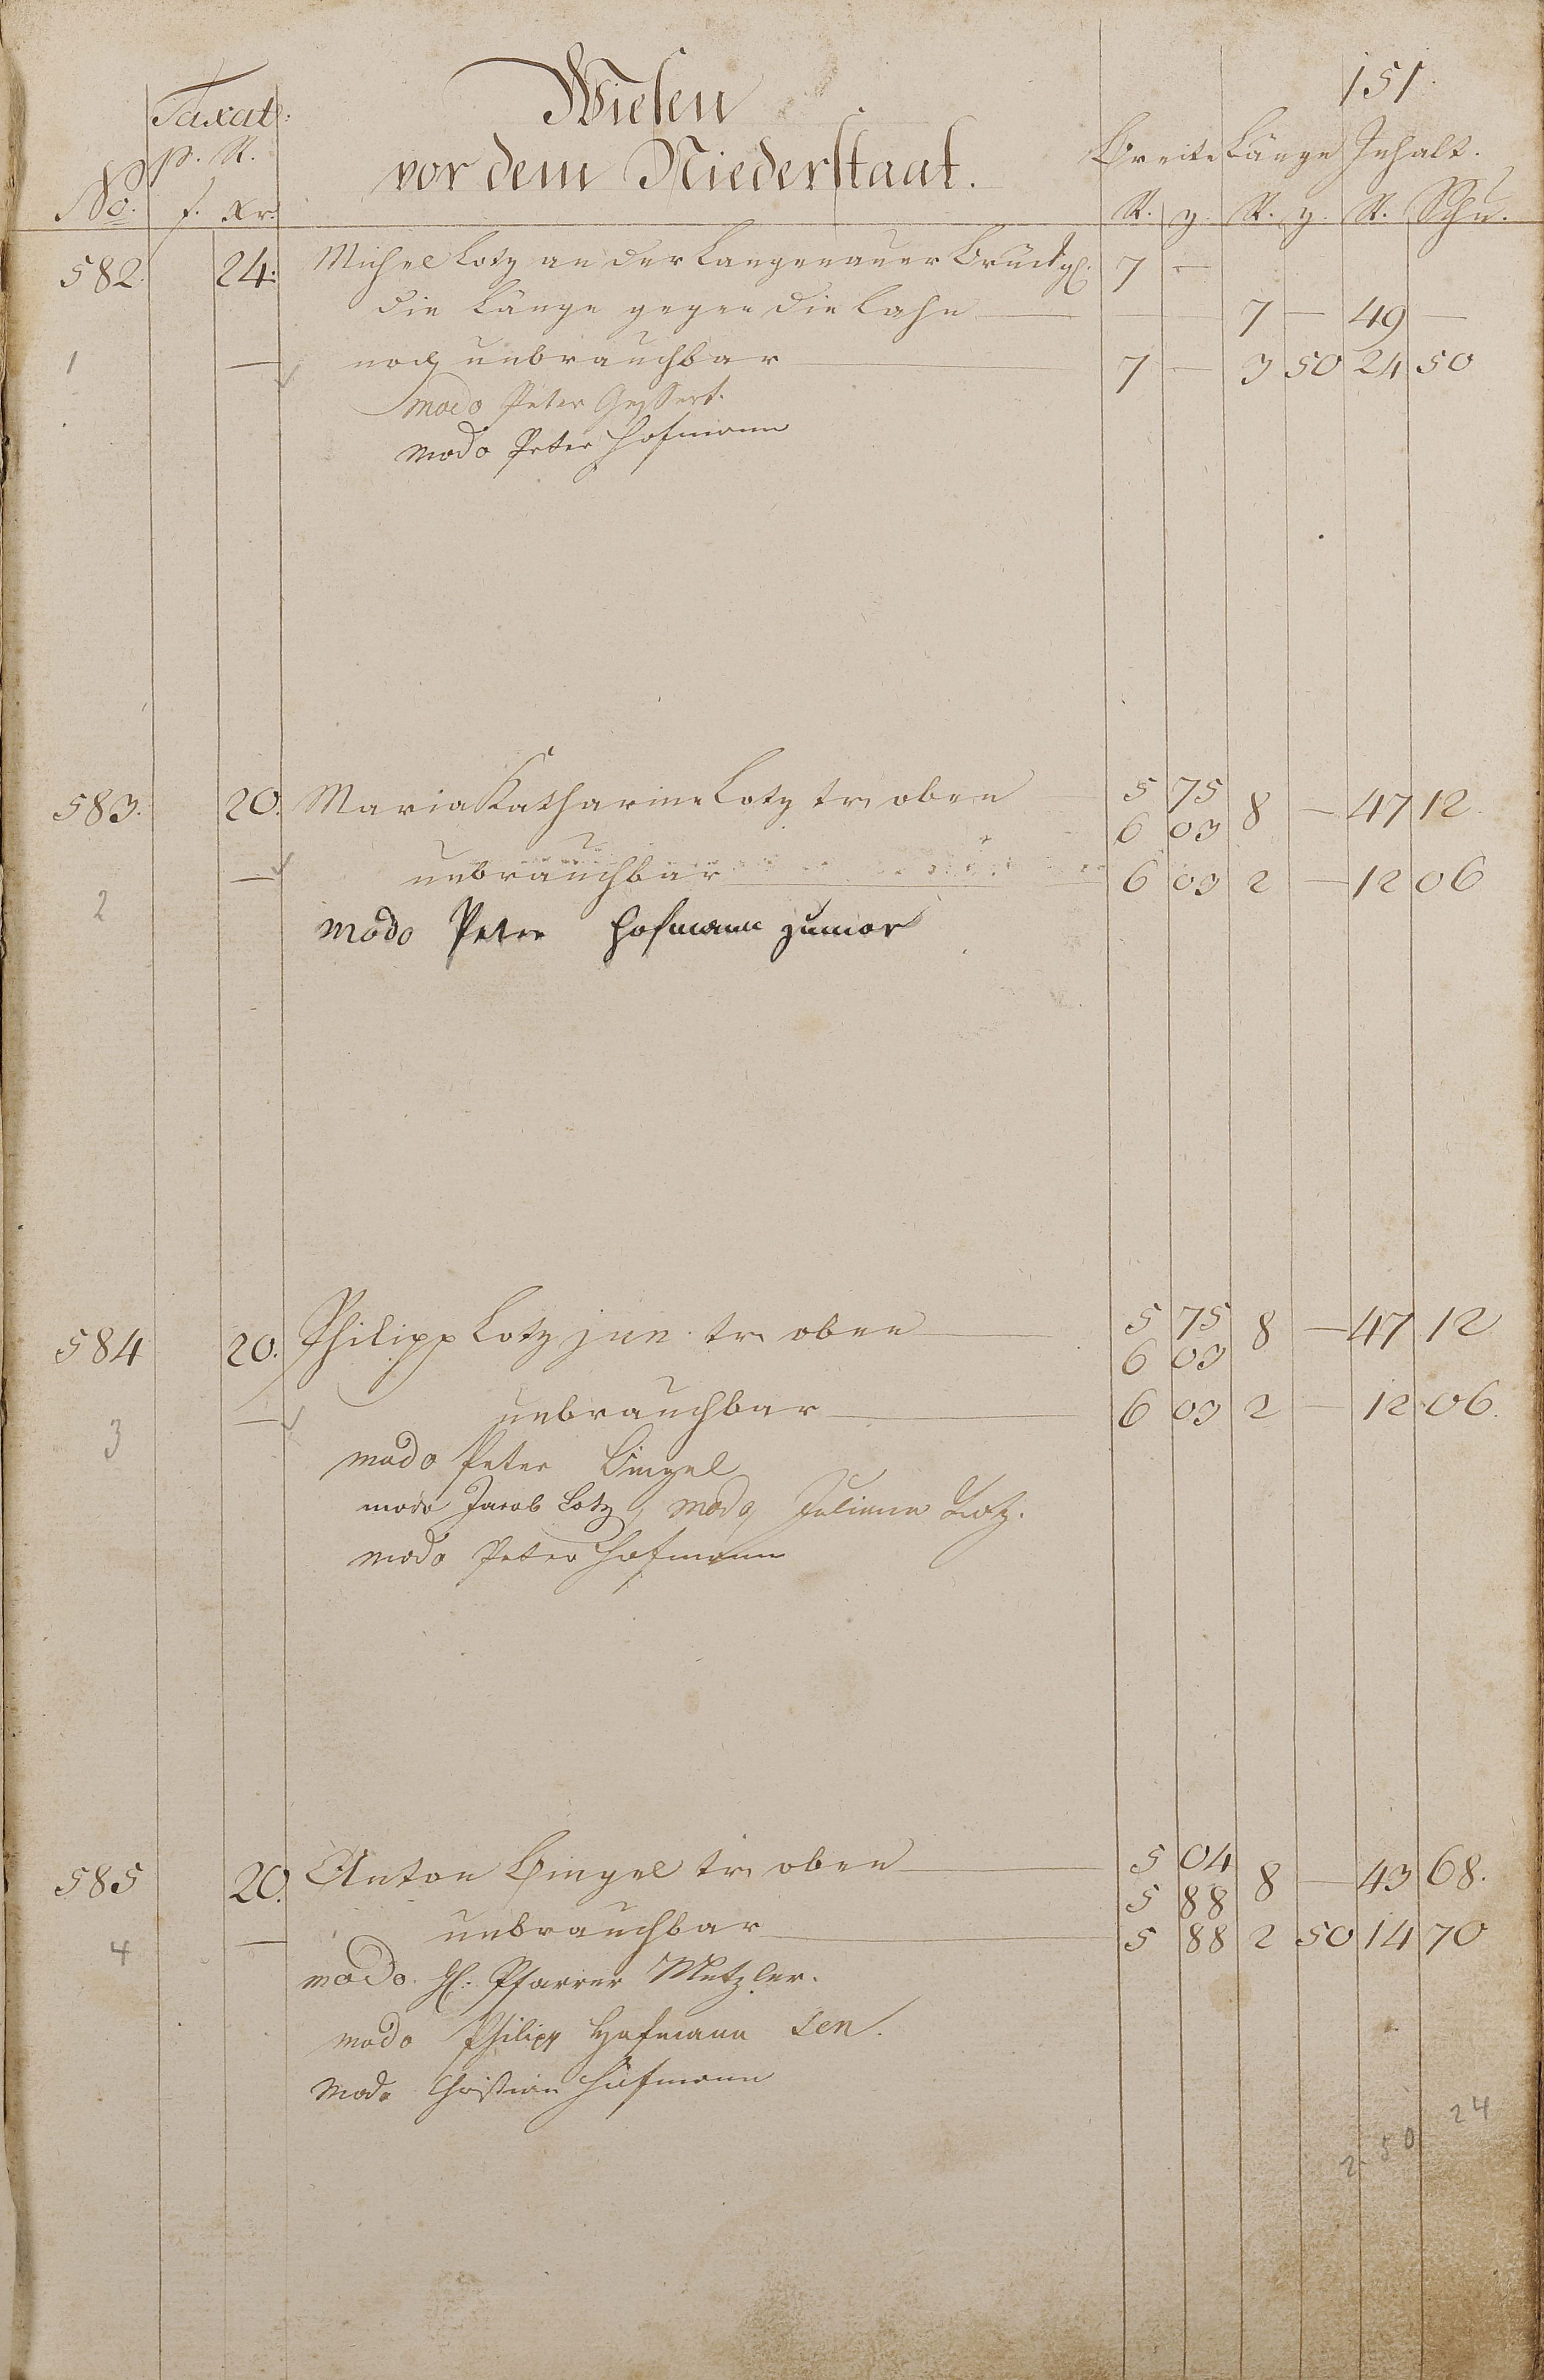 151.
Taxat:
Wiesen
p. R.
vor dem Niederstaat.
Breite Länge Inhalt.
No. f. Xr. R. R. R. Schu.
582. 24. Michel Lotz an der Langenauer Brück 7 —
die Länge gegen die Lahn — — — 7 — 49 —
1 — noch unbrauchbar — 7 — 3 50 24 50
modo Peter Gessert.
modo Peter Hofmann
583. 20. Maria Katharine Lotz oben 5 75 8 — 47 12
6 03
2 — unbrauchbar — 6 03 2 — 12 06
modo Peter Hofmann junior
584 20. Philipp Lotz jun. oben — 5 75 8 — 47 12
6 03
3 — unbrauchbar — 6 03 2 — 12 06.
modo Peter Bingel
modo Jacob Lotz, modo Juliana Lotz.
modo Peter Hofmann
585 20. Anton Bingel oben — 5 04 8 — 43 68.
5 88
4 — unbrauchbar — 5 88 2 50 14 70
modo H. Pfarrer Metzler.
modo Philipp Hofmann sen.
modo Christian Hofmann
24
2 50